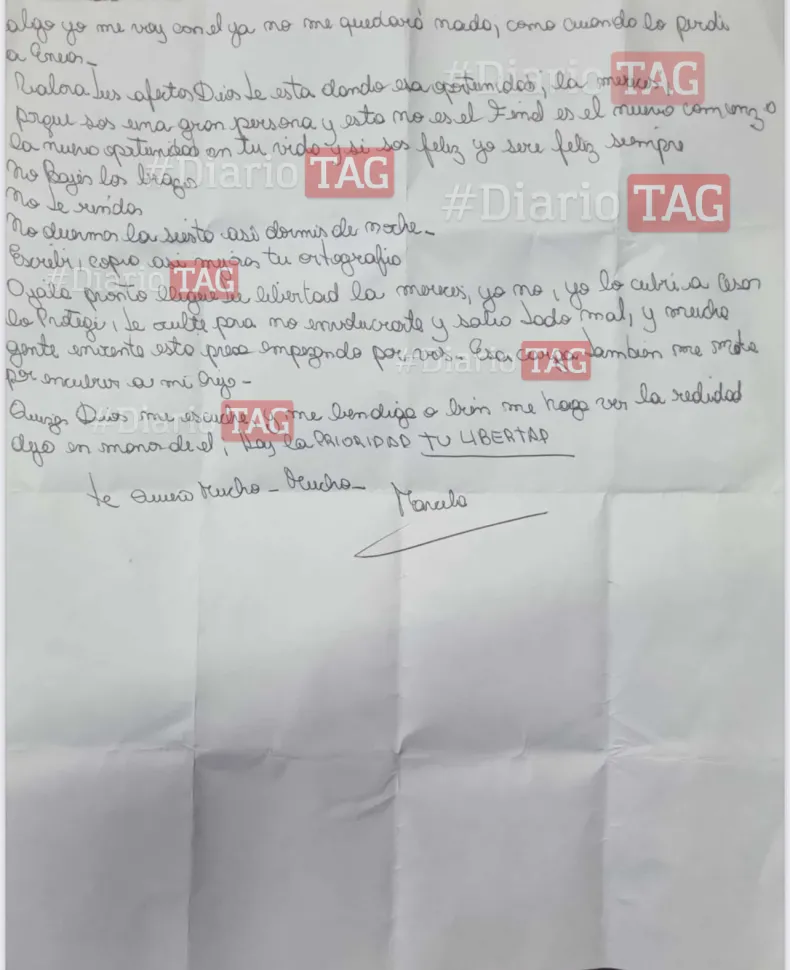 algo yo me voy con el ya no me quedará nada, como cuando lo perdi
a Eneas_
Valora tus afectos Dios te esta dando esa oportunidad, la mereces,
porque sos una gran persona y esto no es el Find es el nuevo comienzo
la nueva oportunidad en tu vida y si sos feliz yo sere feliz siempre
No bajes los brazos
No te rindas
No duermas la siesta asi dormis de noche_
Escribi, copia, asi mejoras tu ortografia
Ojala pronto llegue la libertad la mereces, yo no, yo lo cubri a Cesar
lo Protegi, te oculte para no involucrarte y salio todo mal, y mucha
gente inocente esta presa empezando por vos_ Esa carga tambien me mata
por encubrir a mi hijo_
Quizas Dios me escuche y me bendiga o bien me haga ver la realidad
dejo en manos de el, Hoy la PRIORIDAD TU LIBERTAD
te quiero Mucho_ Mucho_
Marcela
#Diario TAG
#Diario TAG
#Diario TAG
#Diario TAG
#Diario TAG
#Diario TAG